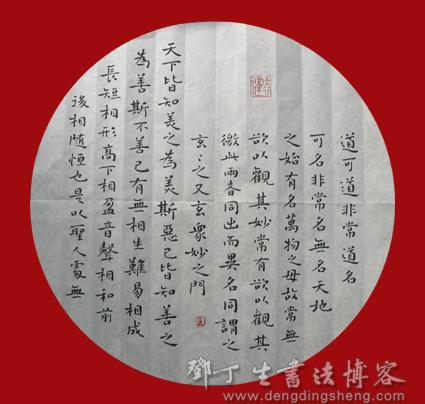 道可道非常道名
可名非常名無名天地
之始有名萬物之母故常無
欲以觀其妙常有欲以觀其
徼此兩者同出而異名同謂之
玄〻之又玄衆妙之門
天下皆知美之為美斯惡已皆知善之
為善斯不善已有無相生難易相成
長短相形高下相盈音聲相和前
後相随恒也是以聖人處無
鄧丁生書法博客
www.dengdingsheng.com